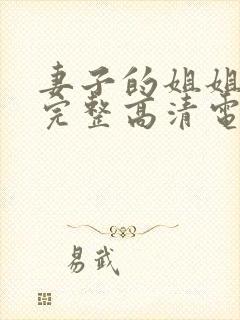 妻子的姐姐
完整高清电
易武